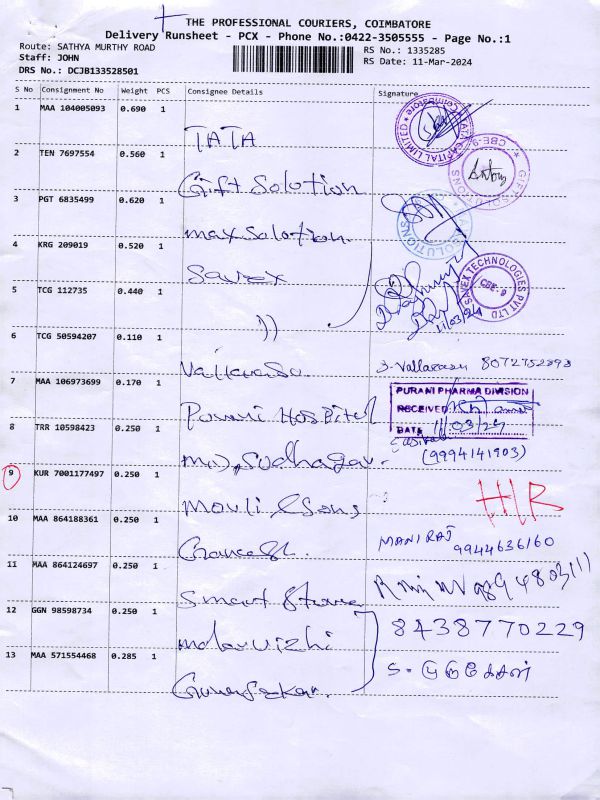 THE PROFESSIONAL COURIERS, COIMBATORE
Delivery Runsheet - PCX - Phone No.:0422-3505555 - Page No.:1
Route: SATHYA MURTHY ROAD
RS No.: 1335285
Staff: JOHN
RS Date: 11-Mar-2024
DRS No.: DCJB133528501
S No Consignment No Weight PCS Consignee Details Signature
1 MAA 104005093 0.690 1
TATA
2 TEN 7697554 0.560 1
Gift Solution
3 PGT 6835499 0.620 1
max solution
4 KRG 209019 0.520 1
Savex
SAVEX TECHNOLOGIES PVT LTD
CBE-9
5 TCG 112735 0.440 1
))
11/03/24
6 TCG 50594207 0.110 1
S. Vallarasu
7 MAA 106973699 0.170 1
Purani Hospital
PURANI PHARMA DIVISION
RECEIVED
DATE 11/03/24
8 TRR 10598423 0.250 1
Sudhagar
(9994141903)
9 KUR 7001177497 0.250 1
Mouli & Sons
10 MAA 864188361 0.250 1
MANI RAJ
9944636160
11 MAA 864124697 0.250 1
Smart Store
12 GGN 98598734 0.250 1
malarvizhi
8438770229
13 MAA 571554468 0.285 1
Gunasekar